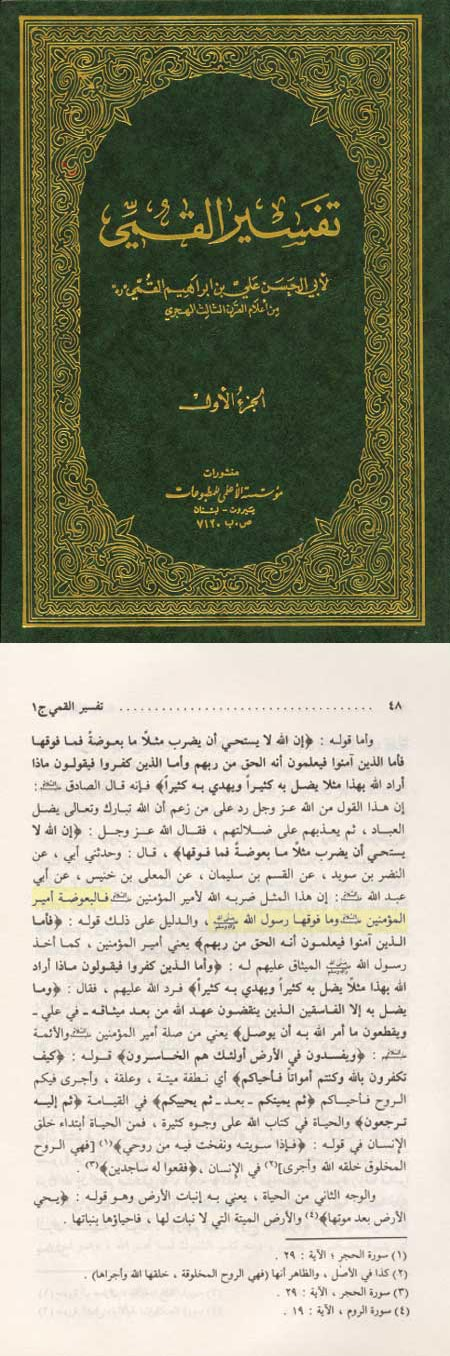 تفسير القمي
لأبي الحسن علي بن ابراهيم القمي «ره»
من أعلام القرن الثالث الهجري
الجزء الأول
منشورات
مؤسسة الأعلمي للمطبوعات
بيروت - لبنان
ص.ب ٧١٢٠
٤٨ ........................................ تفسير القمي ج١
وأما قوله : ﴿إن الله لا يستحي أن يضرب مثلًا ما بعوضة فما فوقها
فأما الذين آمنوا فيعلمون أنه الحق من ربهم وأما الذين كفروا فيقولون ماذا
أراد الله بهذا مثلا يضل به كثيراً ويهدي به كثيراً﴾ فإنه قال الصادق عليه السلام :
إن هذا القول من الله عز وجل رد على من زعم أن الله تبارك وتعالى يضل
العباد ، ثم يعذبهم على ضلالتهم ، فقال الله عز وجل : ﴿إن الله لا
يستحي أن يضرب مثلًا ما بعوضة فما فوقها﴾ ، قال : وحدثني أبي ، عن
النضر بن سويد ، عن القسم بن سليمان ، عن المعلى بن خنيس ، عن أبي
عبد الله عليه السلام : إن هذا المثل ضربه الله لأمير المؤمنين عليه السلام فالبعوضة أمير
المؤمنين عليه السلام وما فوقها رسول الله ﷺ ، والدليل على ذلك قوله : ﴿فأما
الذين آمنوا فيعلمون أنه الحق من ربهم﴾ يعني أمير المؤمنين ، كما أخذ
رسول الله ﷺ الميثاق عليهم له : ﴿وأما الذين كفروا فيقولون ماذا أراد
الله بهذا مثلًا يضل به كثيراً ويهدي به كثيراً﴾ فرد الله عليهم ، فقال : ﴿وما
يضل به إلا الفاسقين الذين ينقضون عهد الله من بعد ميثاقه ـ في علي ـ
ويقطعون ما أمر الله به أن يوصل﴾ يعني من صلة أمير المؤمنين عليه السلام والأئمة
عليهم السلام : ﴿ويفسدون في الأرض أولئك هم الخاسرون﴾ قوله : ﴿كيف
تكفرون بالله وكنتم أمواتاً فأحياكم﴾ أي نطفة ميتة ، وعلقة ، وأجرى فيكم
الروح فأحياكم ﴿ثم يميتكم ـ بعد ـ ثم يحييكم﴾ في القيامة ﴿ثم إليه
ترجعون﴾ والحياة في كتاب الله على وجوه كثيرة ، فمن الحياة أبتداء خلق
الإنسان في قوله : ﴿فإذا سويته ونفخت فيه من روحي﴾(١) [فهي الروح
المخلوق خلقه الله وأجرى](٢) في الإنسان ، ﴿فقعوا له ساجدين﴾(٣) .
والوجه الثاني من الحياة ، يعني به إنبات الأرض وهو قوله : ﴿يحي
الأرض بعد موتها﴾(٤) والأرض الميتة التي لا نبات لها ، فاحياؤها بنباتها .
(١) سورة الحجر ؛ الآية : ٢٩ .
(٢) كذا في الأصل ، والظاهر أنها (فهي الروح المخلوقة ، خلقها الله وأجراها) .
(٣) سورة الحجر ، الآية : ٢٩ .
(٤) سورة الروم ، الآية : ١٩ .